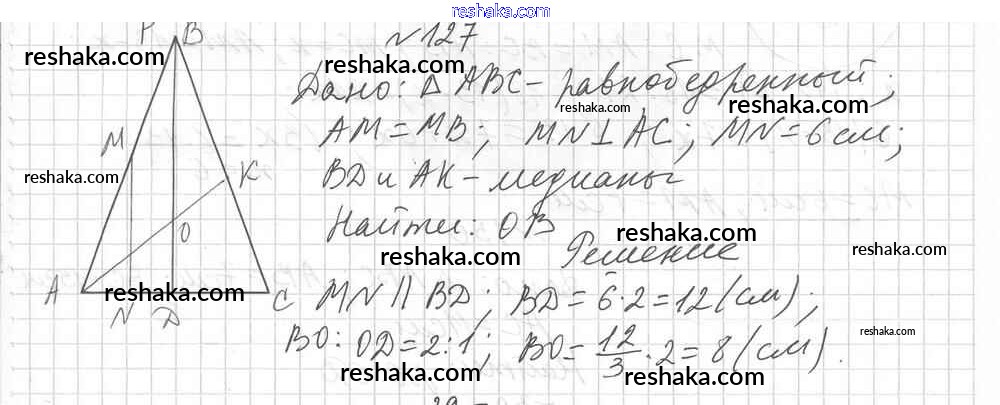 reshaka.com
№127
Дано: △ABC - равнобедренный;
AM = MB; MN ⊥ AC; MN = 6 см;
BD и AK - медианы
Найти: OB
Решение
MN || BD; BD = 6·2 = 12 (см);
BO : OD = 2:1; BO = 12/3 · 2 = 8 (см).
B
M
K
O
A
C
N D
reshaka.com
reshaka.com
reshaka.com
reshaka.com
reshaka.com
reshaka.com
reshaka.com
reshaka.com
reshaka.com
reshaka.com
reshaka.com
reshaka.com